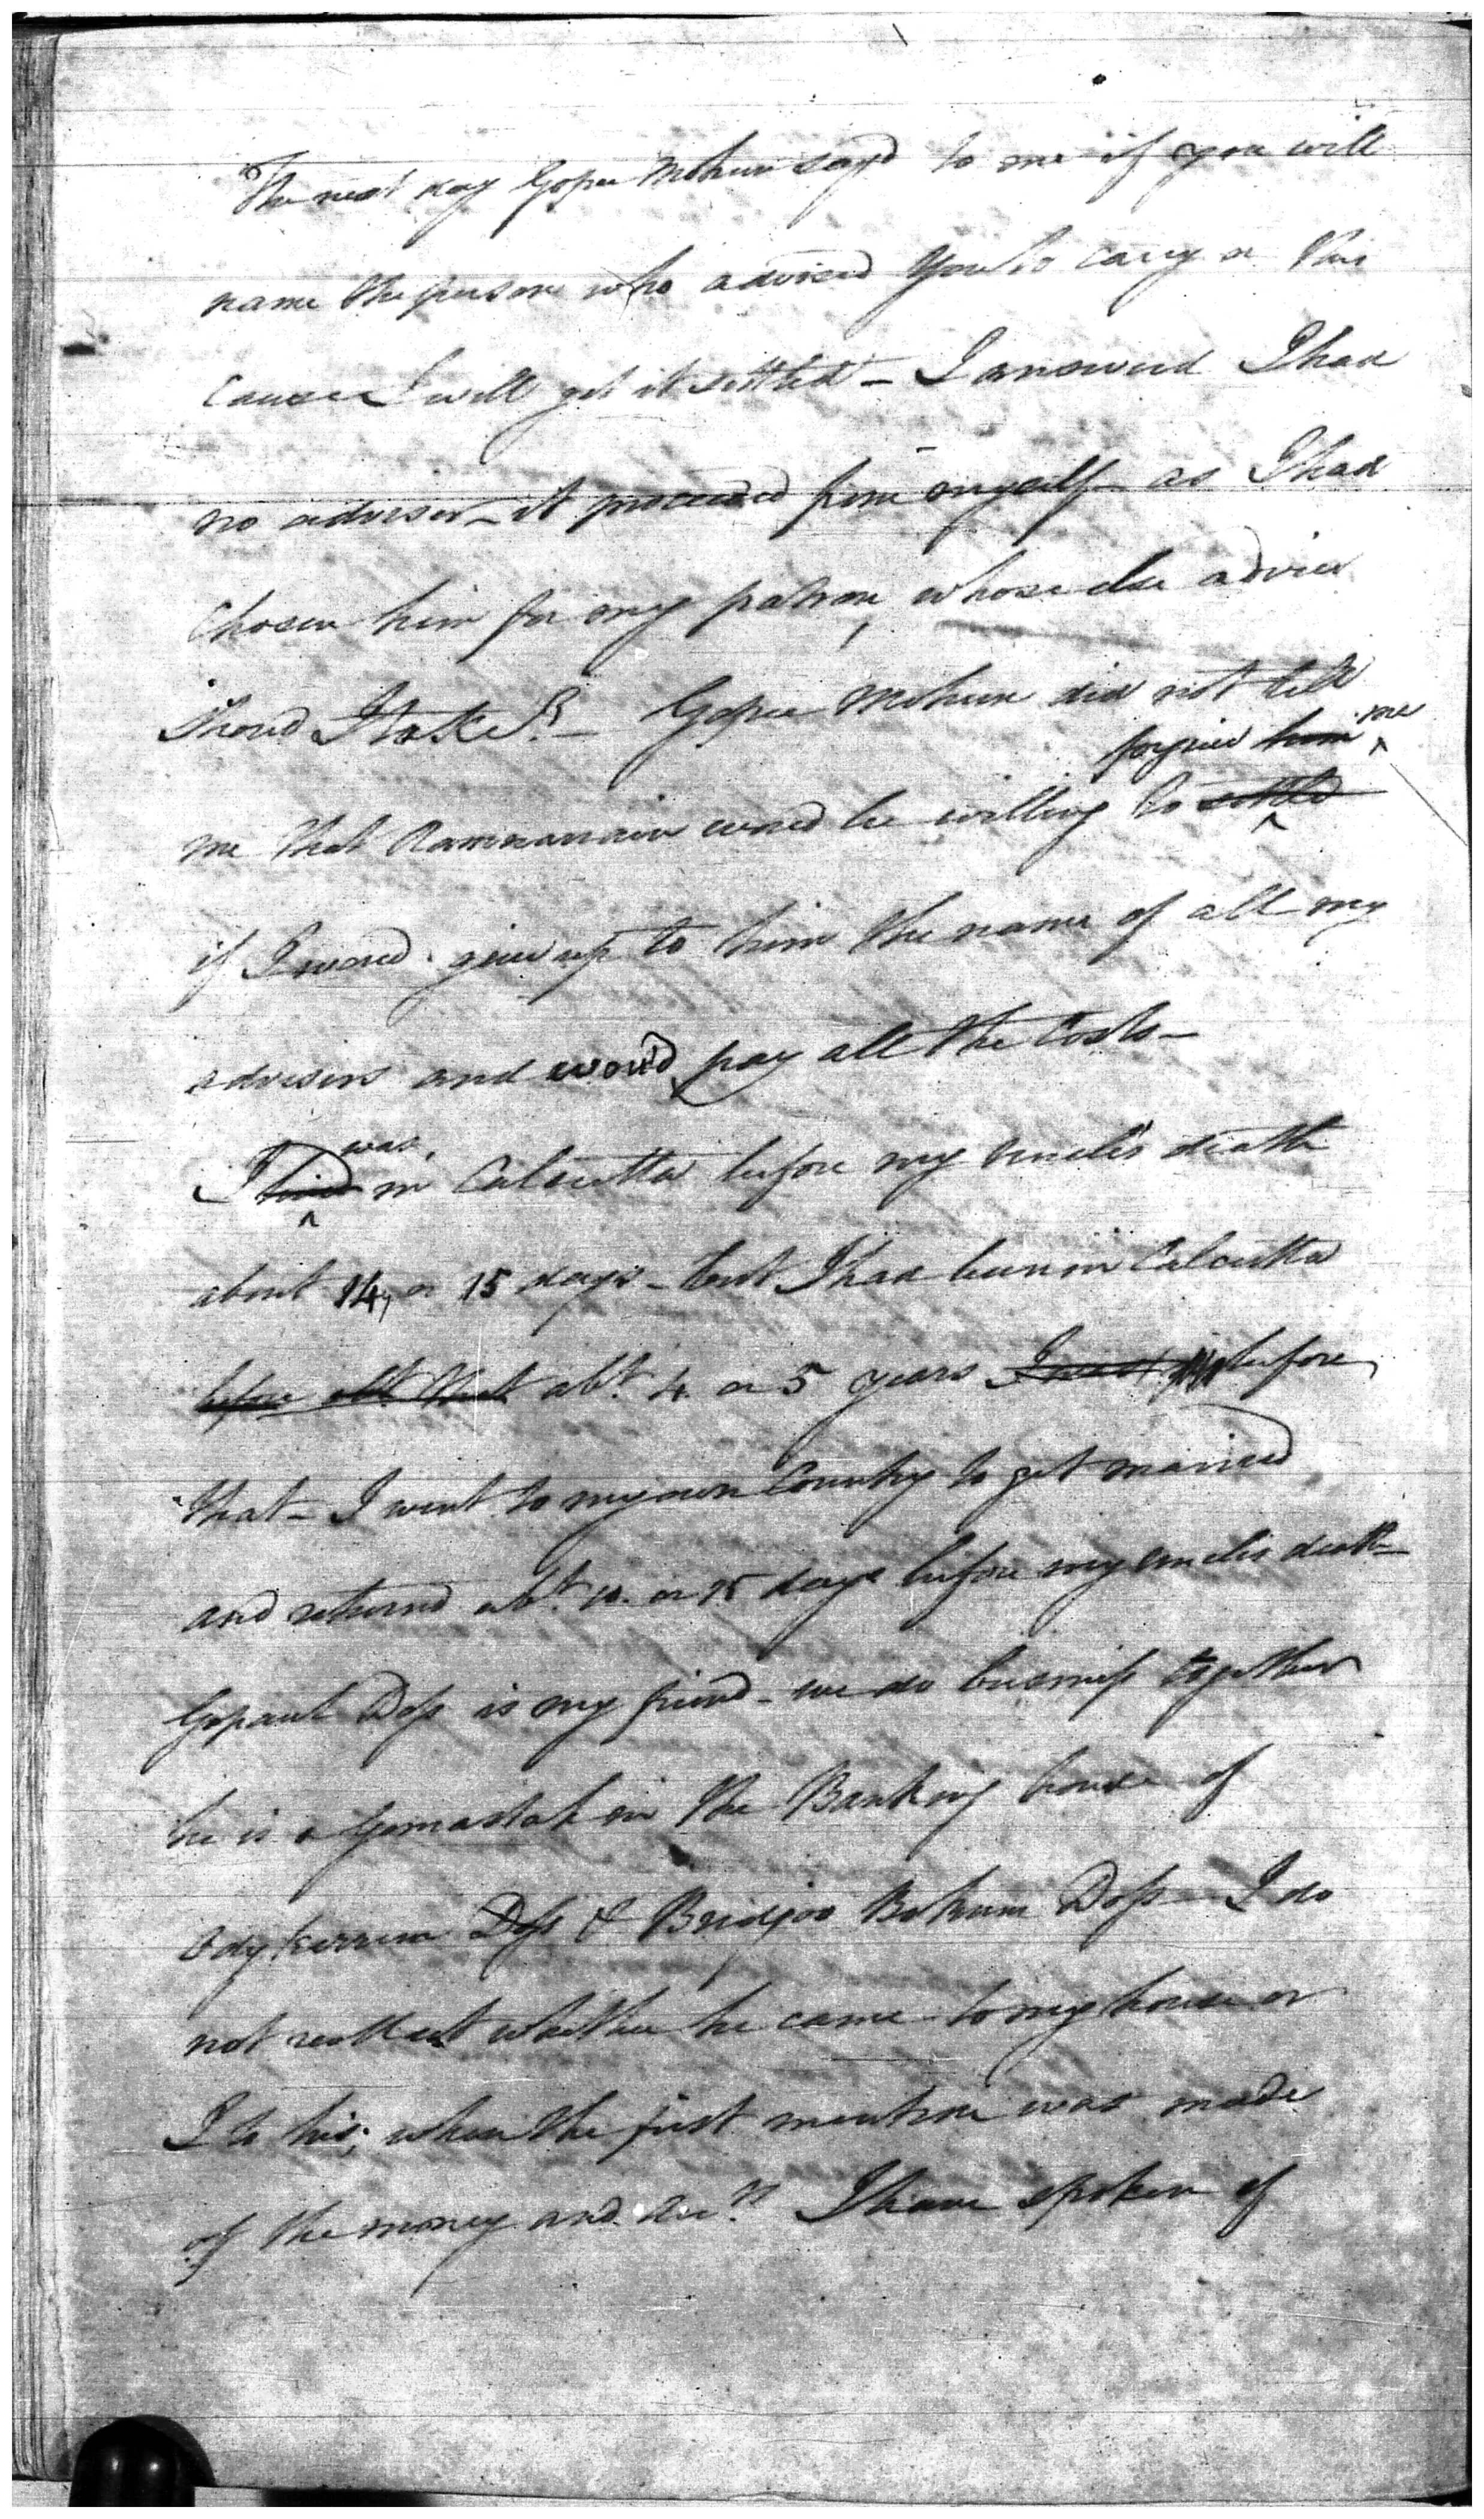 The next day Gopee Mohun sayd to me if you will
name the person who advised you to carry on this
cause I will get it settled – I answered I had
no adviser – it proceeded from myself as I had
chosen him for my patron, whose else advice
shoud I take? – Gopee Mohun did not tell
me that Ramnarrain woud be willing to settled forgive him me
if I woud give up to him the name of all my
advisers and wou'd pay all the Costs –
I lived was in Calcutta before my Uncle's death
about 14, or 15 days – but I had been in Calcutta
before abt. that abt. 4 or 5 years I was before
that – I went to my own Country to get married
and returnd abt. 10. or 15 days before my uncles death –
Gopaul Doss is my friend – we do business together
he is a Gomastah in the Banking house of
Doss & Bridjoo Doss – I do
not recollect whether he came to my house or
I to his; when the first mention was made
of the money and I have spoken of